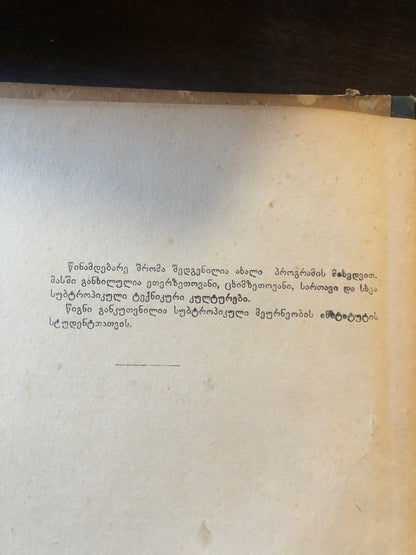 წინამდებარე შრომა შედგენილია ახალი პროგრამის მიხედვით.
მასში განხილულია ეთერზეთოვანი, ცხიმზეთოვანი, სართავი და სხვა
სუბტროპიკული ტექნიკური კულტურები.
წიგნი განკუთვნილია სუბტროპიკული მეურნეობის ინსტიტუტის
სტუდენტთათვის.